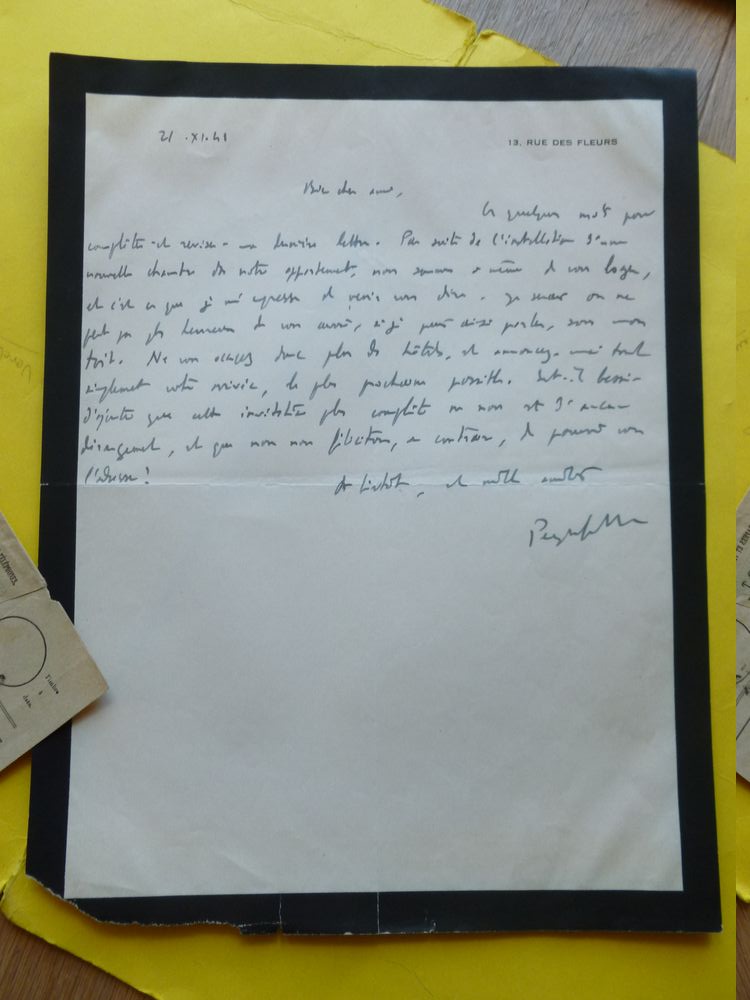 21 . XI. 41
13, RUE DES FLEURS
Bien cher ami,
Ces quelques mots pour
compléter et reviser ma dernière lettre. Par suite de l'installation d'une
nouvelle chambre ds notre appartement, nous sommes à même de vous loger,
et c'est ce que je m'empresse de venir vous dire. Je on ne
peut pas plus heureux de vous avoir, si je peux ainsi parler, sous mon
toit. Ne vous occupez donc plus des hôtels, et annoncez-moi tout
simplement votre arrivée, la plus prochaine possible. Est-il besoin
d'ajouter que cette invitation plus complète ne nous est d'aucun
dérangement, et que nous nous félicitons, au contraire, de pouvoir vous
l'adresser !
A bientôt, et mille amitiés
TÉLÉPHONES.
Timbre
à
date